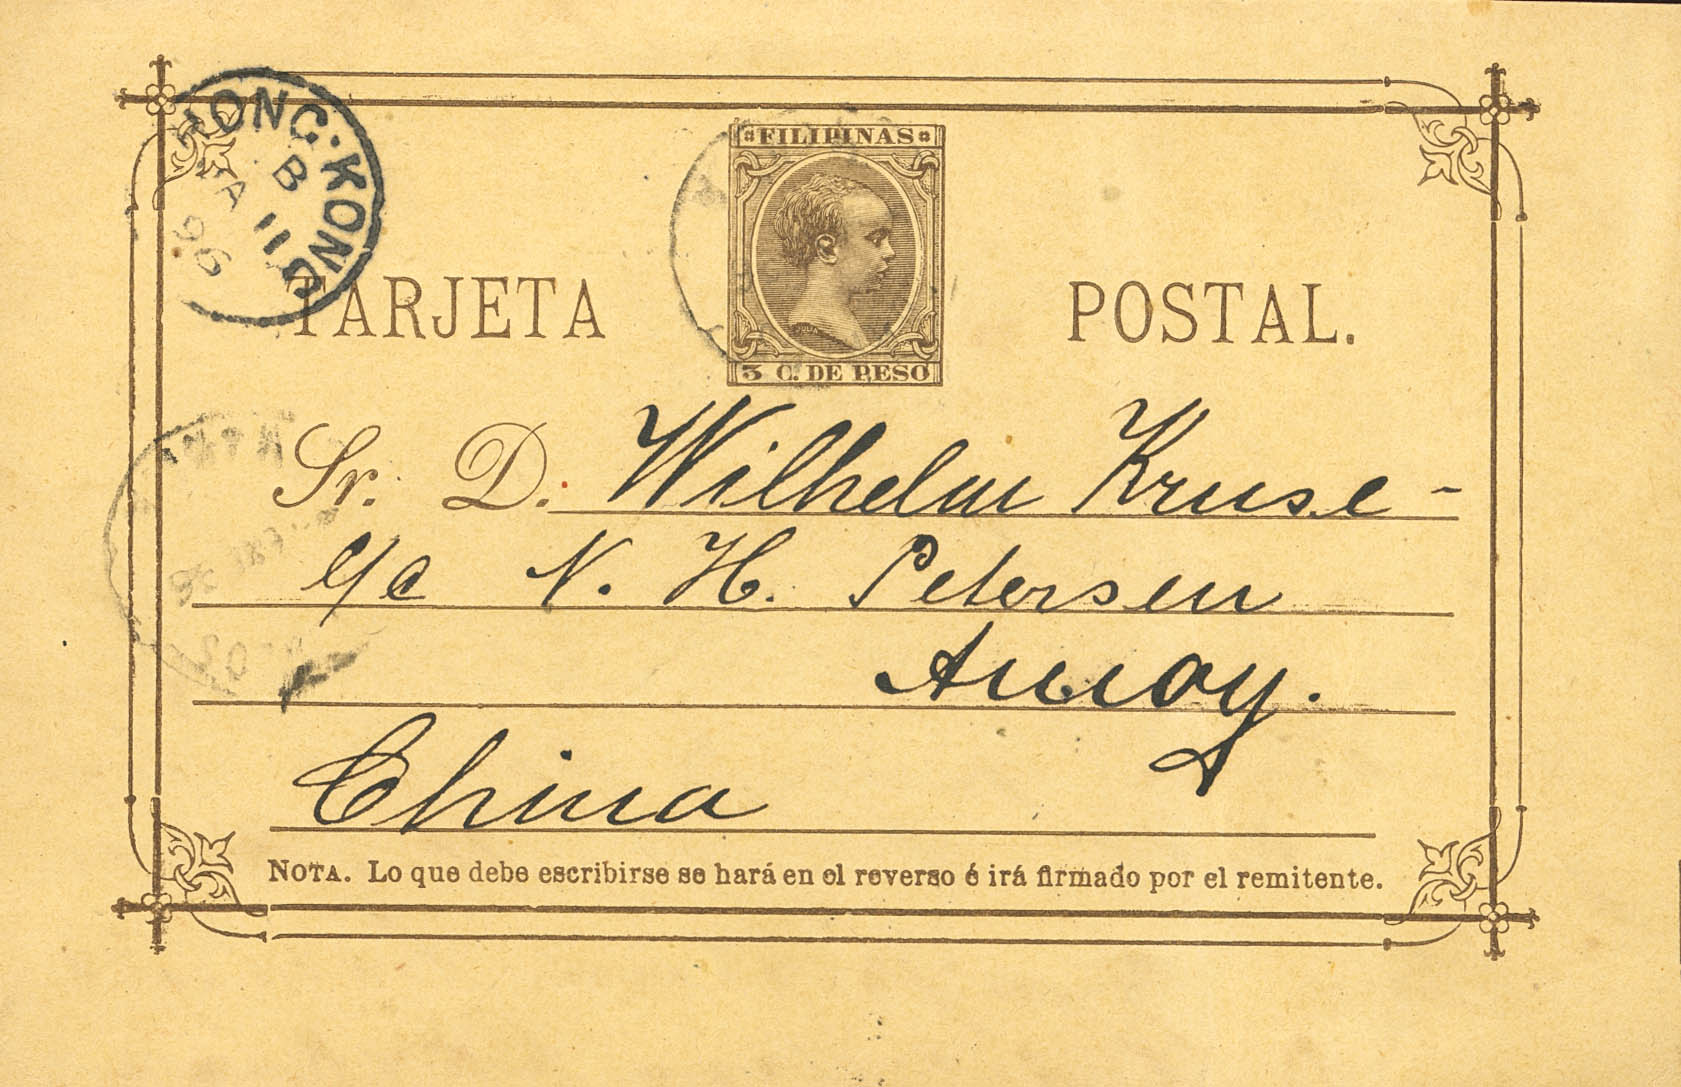 HONG·KONG
B
11
96
FILIPINAS
TARJETA POSTAL.
3 C. DE PESO
Sr. D. Wilhelm Kruse -
c/o N. H. Petersen
Amoy.
China
NOTA. Lo que debe escribirse se hará en el reverso é irá firmado por el remitente.